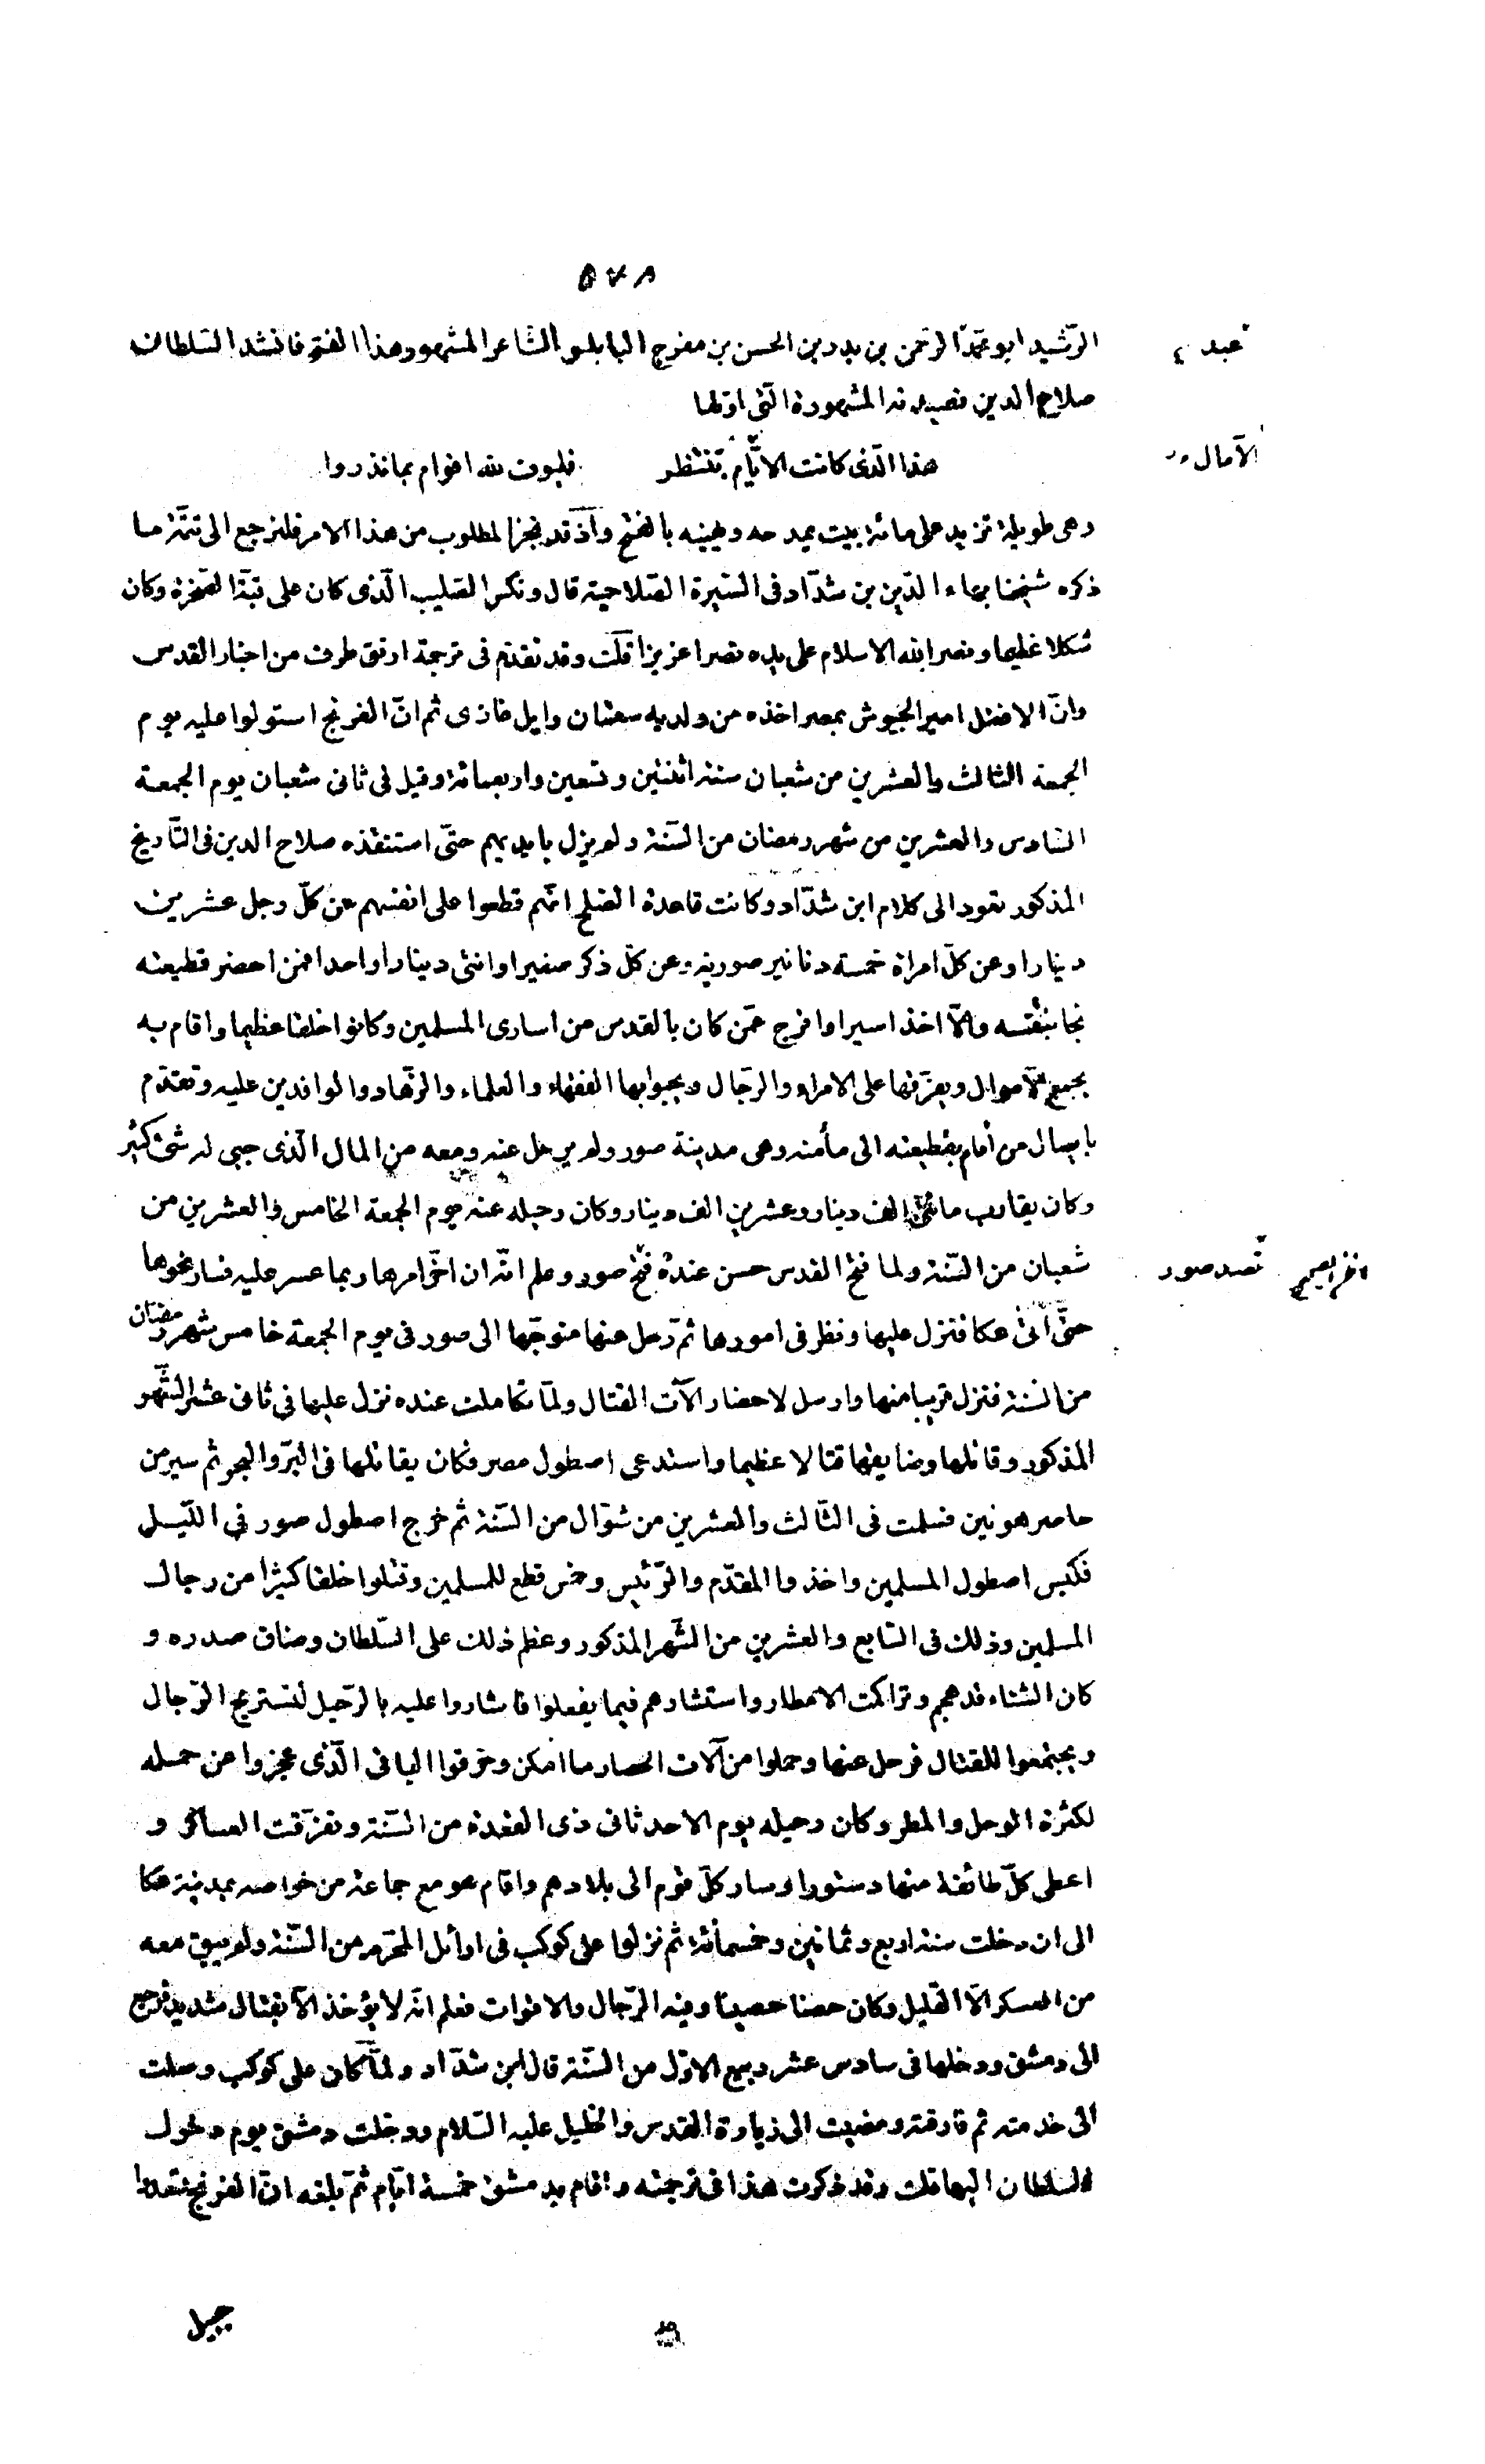 ٥٧٨
الرّشيد ابو محمّد الرّحمن بن بدر بن الحسن بن مفرج البابلسى الشاعر المشهور هذا الفتح فانشد السّلطان
عبد
صلاح الدين قصيدته المشهورة الّتى اوّلها
هذا الّذى كانت الايّام تنتظر فليوف لله اقوام بما نذروا
الآمال
وهى طويلة تزيد على مائة بيت يمدحه ويهنيه بالفتح واذ قد نجز المطلوب من هذا الامر فلنرجع الى تتمّة ما
ذكره شيخنا بهاء الدّين بن شدّاد فى السّيرة الصّلاحية قال ونكس الصّليب الّذى كان على قبّة الصّخرة وكان
شكلا عظيما ونصر الله الاسلام على يده نصرا عزيزا قلت وقد تقدّم فى ترجمة ارتق طرف من اخبار القدس
وانّ الافضل امير الجيوش بمصر اخذه من ولديه سقمان وايل غازى ثم انّ الفرنج استولوا عليه يوم
الجمعة الثالث والعشرين من شعبان سنة اثنتين وتسعين واربعمائة وقيل فى ثانى شعبان يوم الجمعة
السّادس والعشرين من شهر رمضان من السّنة ولم يزل بايديهم حتّى استنقذه صلاح الدين فى التّاريخ
المذكور نعود الى كلام ابن شدّاد وكانت قاعدة الصّلح انّهم قطعوا على انفسهم عن كلّ رجل عشرين
دينارا وعن كلّ امراة خمسة دنانير صورية وعن كلّ ذكر صغير او انثى دينارا واحدا فمن احضر قطيعته
نجا بنفسه والّا اخذ اسيرا وافرج عمّن كان بالقدس من اسارى المسلمين وكانوا خلقا عظيما واقام به
بجمع الاموال ويفرّقها على الامراء والرّجال ويحبوا بها الفقهاء والعلماء والزّهاد والوافدين عليه وتقدّم
بايصال من أقام بقطيعته الى مأمنه وهى مدينة صور ولم يرحل عنه ومعه من المال الّذى جبى له شئ كثير
وكان يقارب مائتى الف دينار وعشرين الف دينار وكان رحيله عنه يوم الجمعة الخامس والعشرين من
شعبان من السّنة ولما فتح القدس حسن عنده فتح صور وعلم انّه ان اخّر امرها ربما عسر عليه فسار نحوها
قصد صور
حتّى اتى عكا فنزل عليها ونظر فى امورها ثم رحل عنها متوجّها الى صور فى يوم الجمعة خامس شهر رمضان
من السّنة فنزل قريبا منها وارسل لاحضار آلات القتال ولمّا تكاملت عنده نزل عليها فى ثانى عشر الشّهر
المذكور وقاتلها وضايقها قتالا عظيما واستدعى اصطول مصر فكان يقاتلها فى البرّ والبحر ثم سير من
حاصر هونين فسلمت فى الثّالث والعشرين من شوّال من السّنة ثم خرج اصطول صور فى اللّيل
فكبس اصطول المسلمين واخذوا المقدّم والرّئيس وخمس قطع للمسلمين وقتلوا خلقا كثيرا من رجال
المسلمين وذلك فى السّابع والعشرين من الشّهر المذكور وعظم ذلك على السّلطان وضاق صدره و
كان الشتاء قد هجم وتراكمت الامطار واستشارهم فيما يفعلوا فاشاروا عليه بالرّحيل لتستريح الرّجال
ويجتمعوا للقتال فرحل عنها وحملوا من آلات الحصار ما امكن وحرقوا الباقى الّذى عجزوا عن حمله
لكثرة الوحل والمطر وكان رحيله يوم الاحد ثانى ذى القعدة من السّنة وتفرّقت العساكر و
اعطى كلّ طائفة منها دستورا وسار كلّ قوم الى بلادهم واقام هو مع جماعة من خواصه بمدينة عكا
الى ان دخلت سنة اربع وثمانين وخمسمائة ثم نزلوا على كوكب فى اوائل المحرّم من السّنة ولم يبق معه
من العسكر الّا القليل وكان حصنا حصينا وفيه الرّجال والاقوات فعلم انّه لا يؤخذ الّا بقتال شديد فرجع
الى دمشق ودخلها فى سادس عشر ربيع الاوّل من السّنة قال ابن شدّاد ولمّا كان على كوكب وصلت
الى خدمته ثم فارقته ومضيت الى زيارة القدس والخليل عليه السّلام ودخلت دمشق يوم دخول
السلطان اليها قلت وقد ذكرت هذا فى ترجمته واقام بدمشق خمسة ايّام ثمّ بلغه انّ الفرنج قصدوا
جبيل